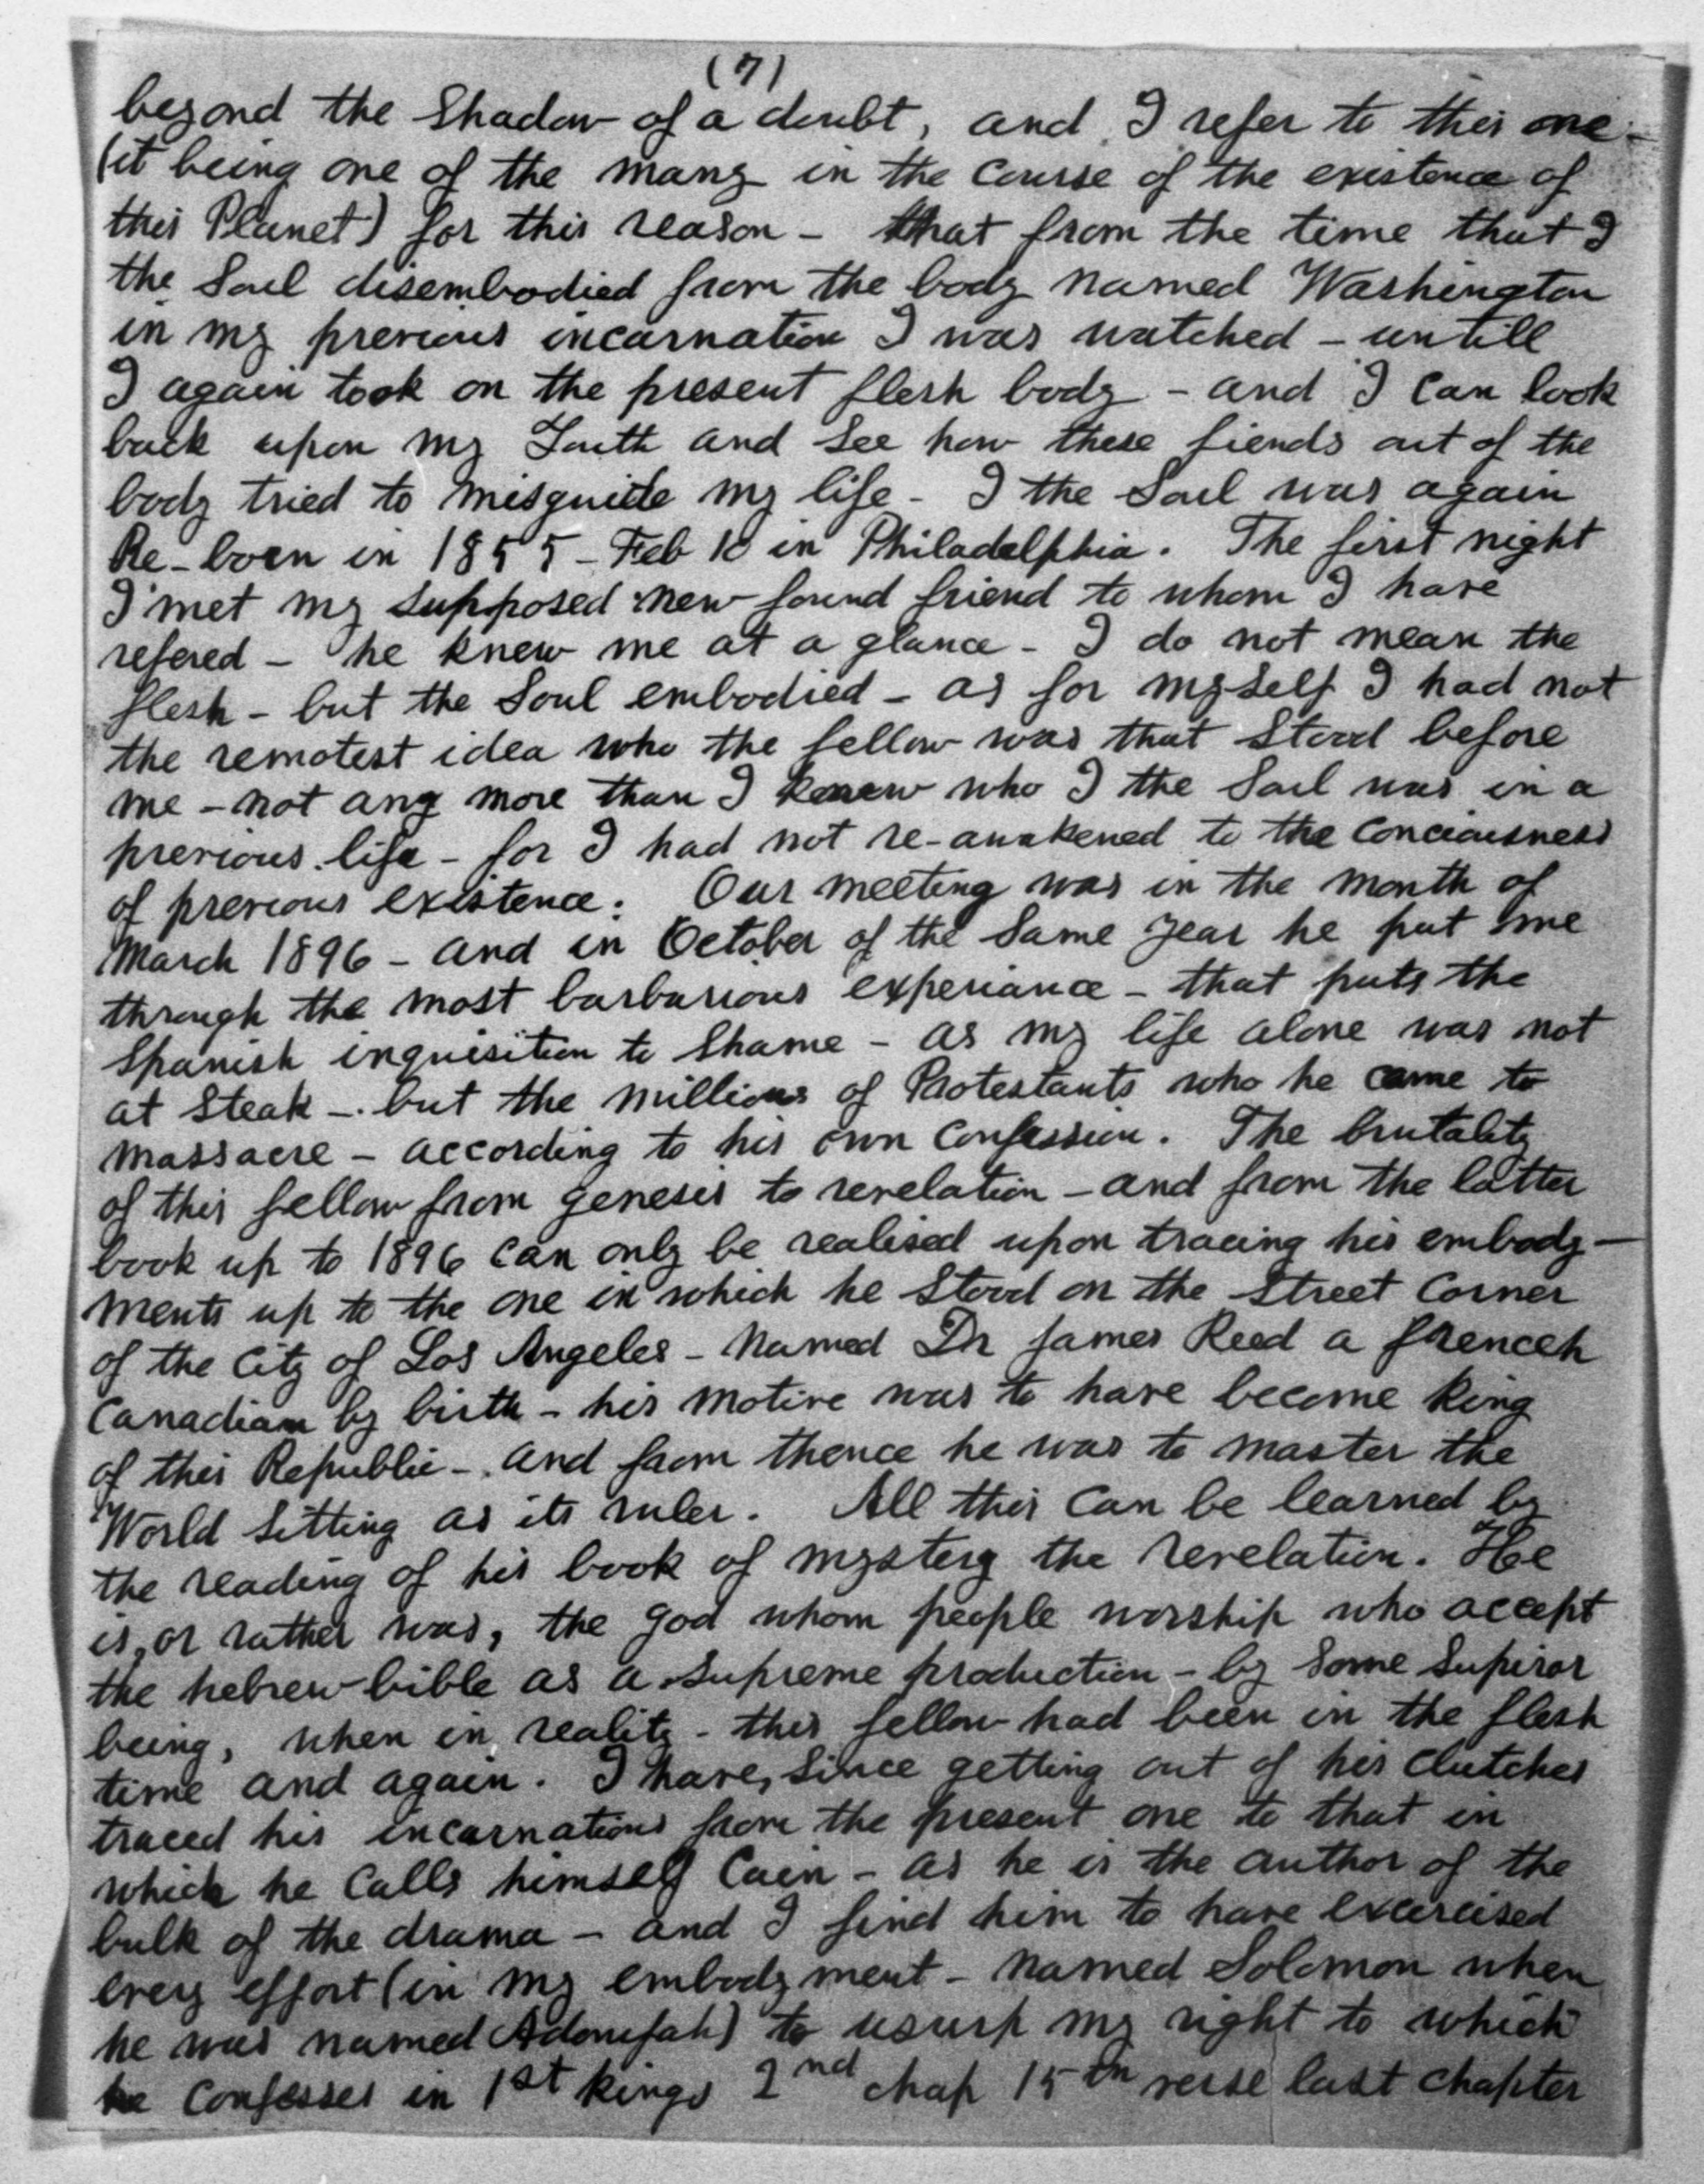 (7)
beyond the Shadow of a doubt, and I refer to this one -
(it being one of the many in the course of the existence of
this Planet) for this reason - that from the time that I
the Soul disembodied from the body named Washington
in my previous incarnation I was watched - untill
I again took on the present flesh body - and I can look
back upon my Youth and See how these fiends out of the
body tried to misguide my life - I the Soul was again
Re-born in 1855 - Feb 10 in Philadelphia. The first night
I met my supposed new found friend to whom I have
refered - he knew me at a glance - I do not mean the
flesh - but the Soul embodied - as for myself I had not
the remotest idea who the fellow was that Stood before
me - not any more than I knew who I the Soul was in a
previous life - for I had not re-awakened to the Conciousness
of previous existence. Our meeting was in the month of
March 1896 - and in October of the Same year he put me
through the most barbarious experiance - that puts the
Spanish inquisition to Shame - as my life alone was not
at Steak - but the millions of Protestants who he came to
massacre - according to his own Confession. The brutality
of this fellow from genesis to revelation - and from the latter
book up to 1896 can only be realised upon tracing his embody-
ments up to the one in which he Stood on the Street Corner
of the City of Los Angeles - Named Dr James Reed a frencch
Canadian by birth - his motive was to have become King
of this Republic - and from thence he was to master the
World Sitting as its ruler. All this Can be learned by
the reading of his book of mystery the revelation. He
is, or rather was, the god whom people worship who accept
the hebrew bible as a Supreme production - by Some Supiror
being, when in reality - this fellow had been in the flesh
time and again. I have, Since getting out of his Clutches
traced his incarnations from the present one to that in
which he Calls himself Cain - as he is the author of the
bulk of the drama - and I find him to have excercised
every effort (in my embodyment - named Solomon when
he was named Adonijah) to usurp my right to which
he Confesses in 1st kings 2nd chap 15th verse last chapter